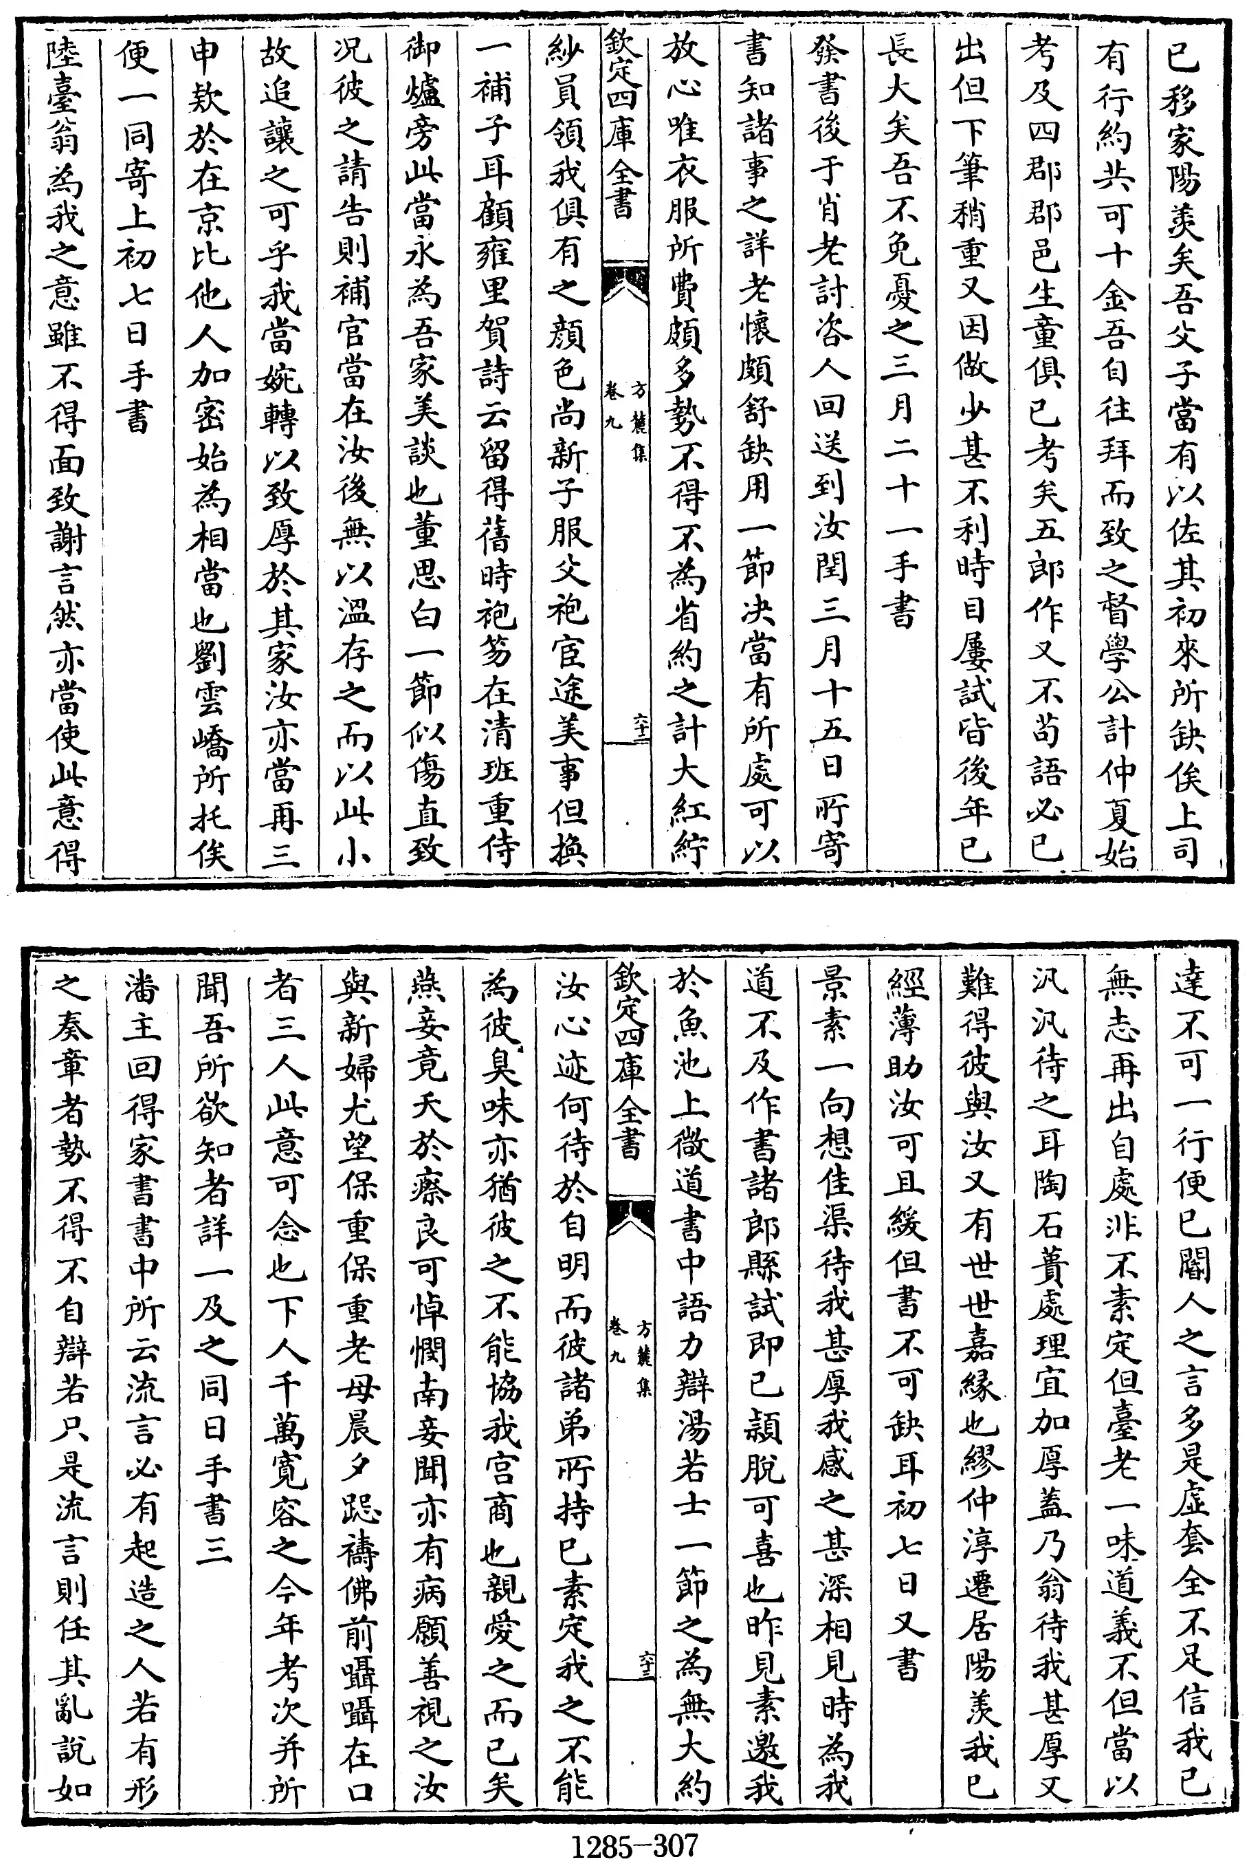 已移家陽羨矣吾父子當有以佐其初來所缺俟上司
有行約共可十金吾自往拜而致之督學公計仲夏始
考及四郡郡邑生童俱已考矣五郎作又不苟語必已
出但下筆稍重又因做少甚不利時目屢試皆後年已
長大矣吾不免憂之三月二十一手書
發書後于肖老討咨人回送到汝閏三月十五日所寄
書知諸事之詳老懷頗舒缺用一節決當有所處可以
放心唯衣服所費頗多勢不得不為省約之計大紅紵
欽定四庫全書
方麓集
卷九
六十二
紗員領我俱有之顔色尚新子服父袍宦途美事但換
一補子耳顧雍里賀詩云留得舊時袍笏在清班重侍
御爐旁此當永為吾家美談也董思白一節似傷直致
况彼之請告則補官當在汝後無以溫存之而以此小
故追讓之可乎我當婉轉以致厚於其家汝亦當再三
申欵於在京比他人加密始為相當也劉雲嶠所托俟
便一同寄上初七日手書
陸臺翁為我之意雖不得面致謝言然亦當使此意得
達不可一行便已閽人之言多是虛套全不足信我已
無志再出自處非不素定但臺老一味道義不但當以
汎汎待之耳陶石蕢處理宜加厚蓋乃翁待我甚厚又
難得彼與汝又有世世嘉緣也繆仲淳遷居陽羨我已
經薄助汝可且緩但書不可缺耳初七日又書
景素一向想佳渠待我甚厚我感之甚深相見時為我
道不及作書諸郎縣試即已穎脫可喜也昨見素邀我
於魚池上微道書中語力辯湯若士一節之為無大約
欽定四庫全書
方麓集
卷九
六十三
汝心迹何待於自明而彼諸弟所持已素定我之不能
為彼臭味亦猶彼之不能協我宮商也親愛之而已矣
燕妾竟夭於瘵良可悼憫南妾聞亦有病願善視之汝
與新婦尤望保重保重老母晨夕跽禱佛前囁囁在口
者三人此意可念也下人千萬寬容之今年考次并所
聞吾所欲知者詳一及之同日手書三
潘主回得家書書中所云流言必有起造之人若有形
之奏章者勢不得不自辯若只是流言則任其亂說如
1285-307